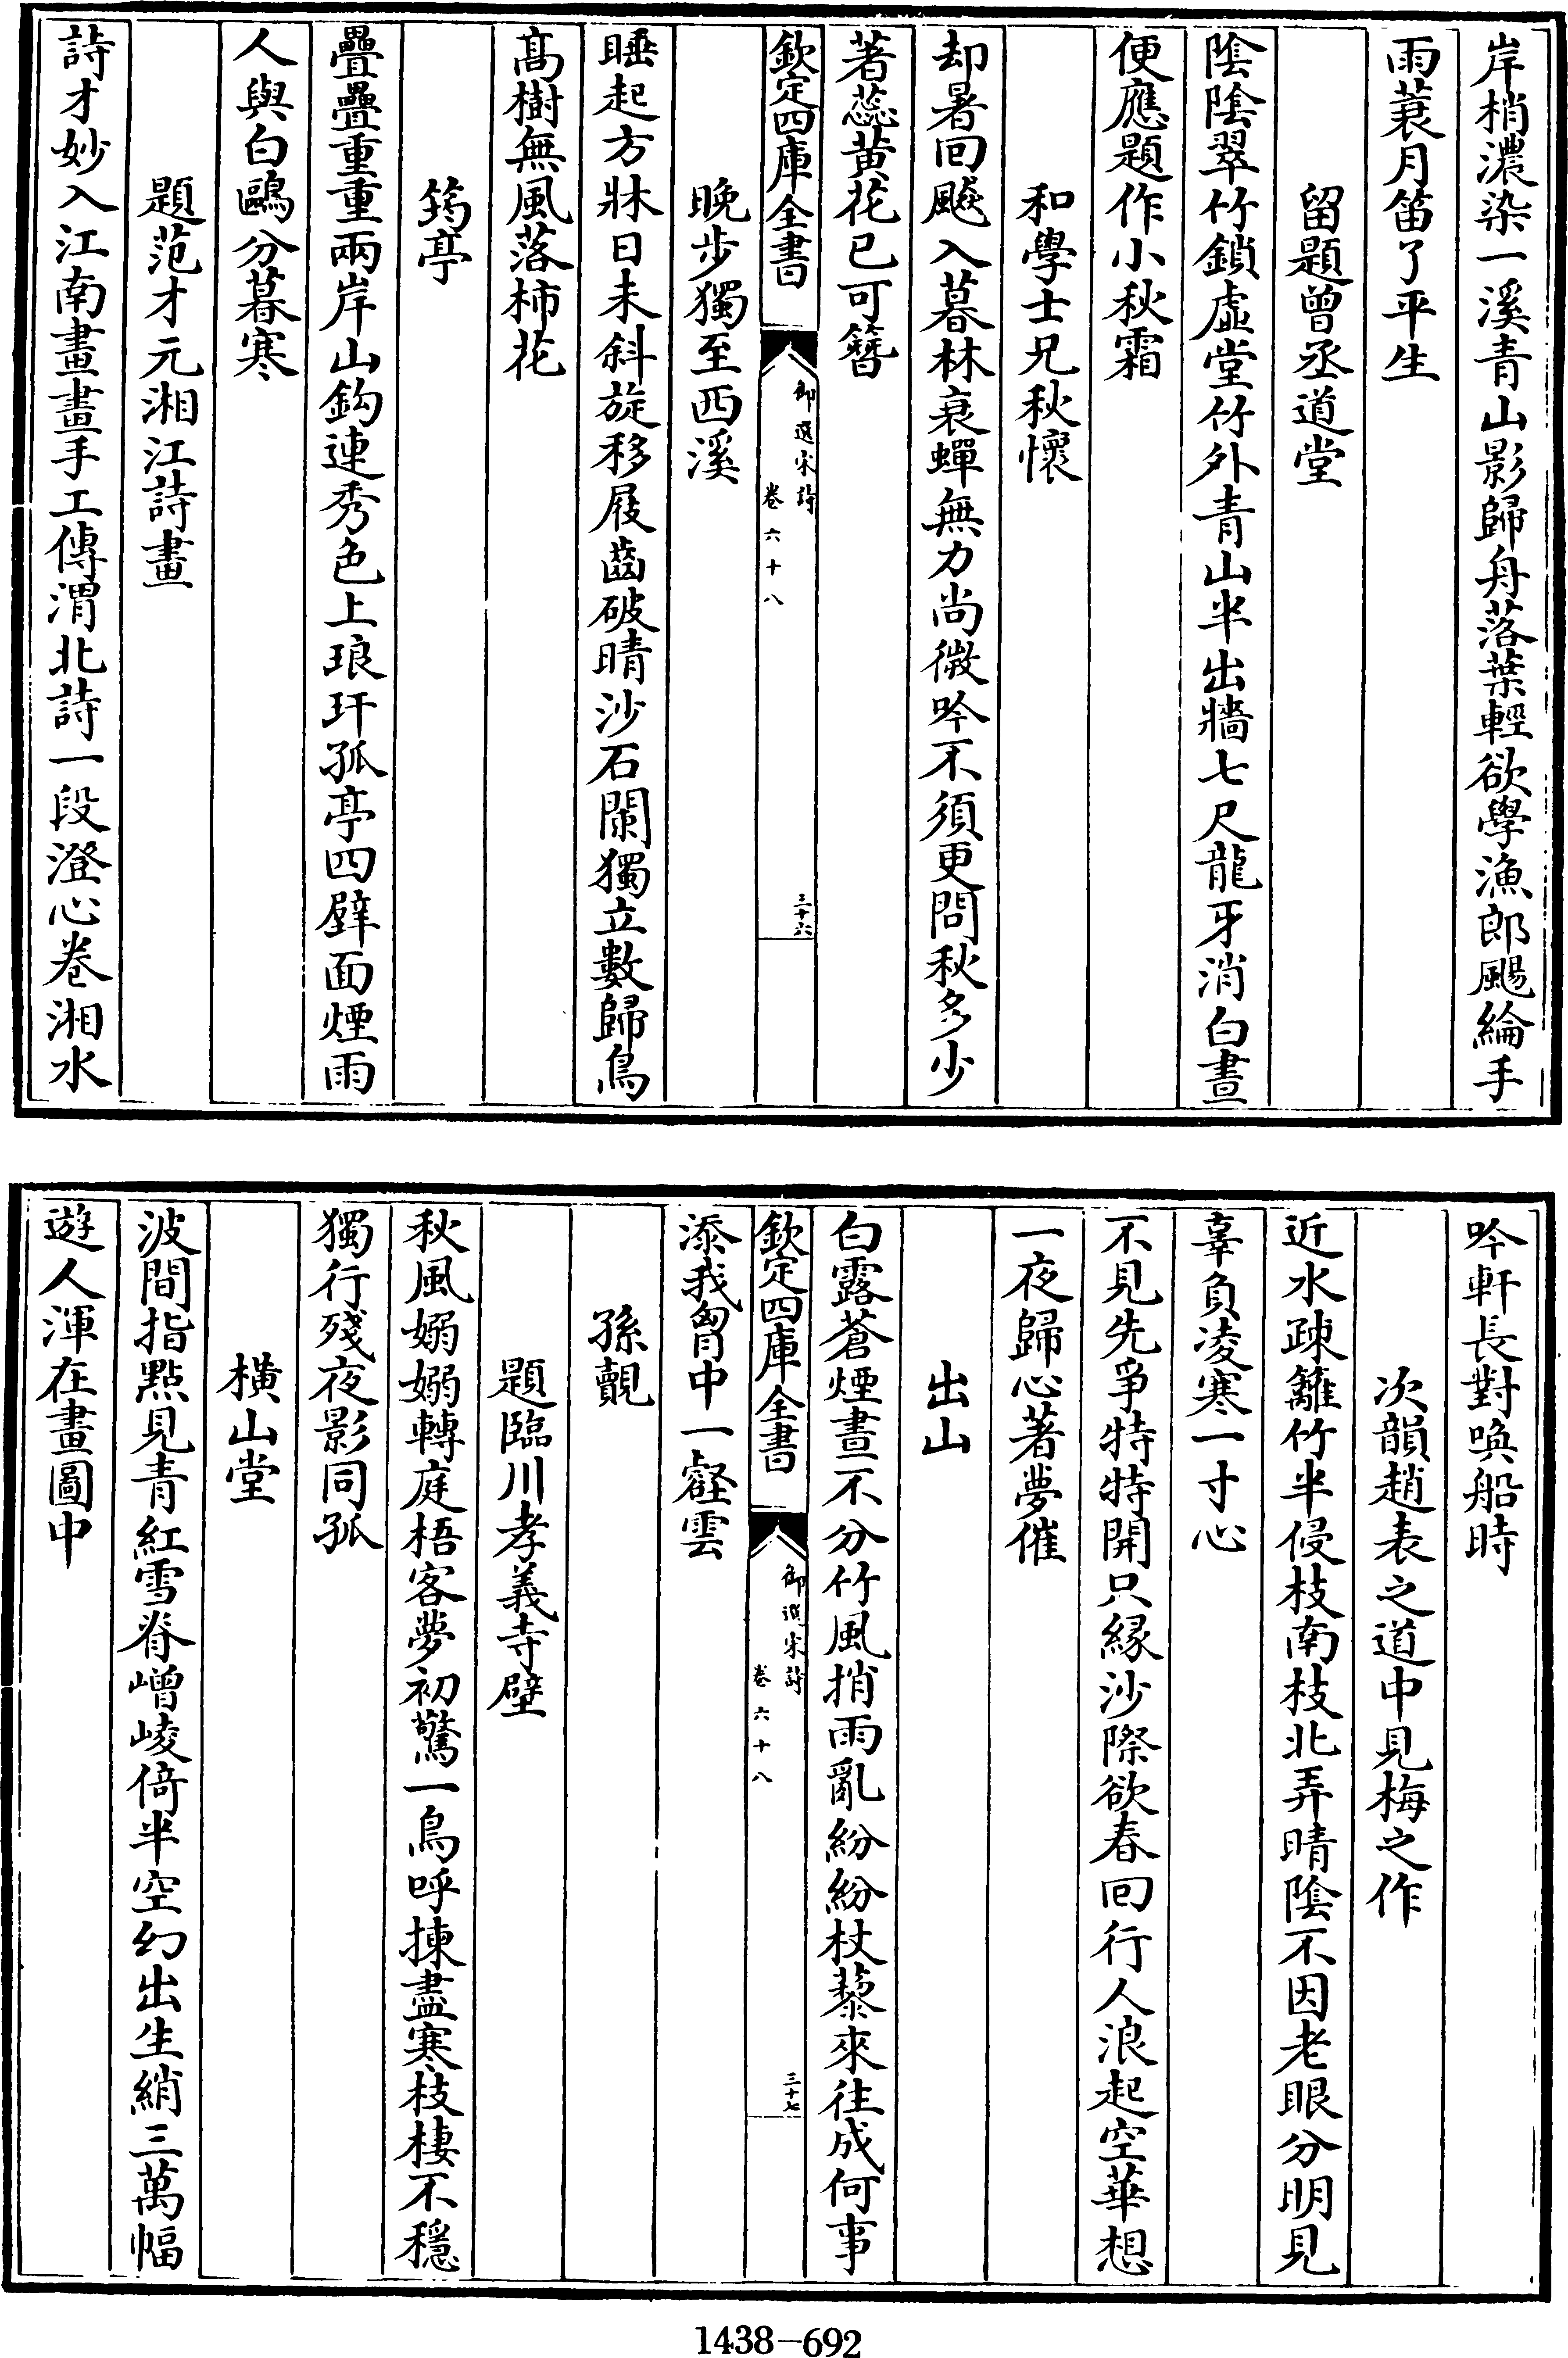 岸梢濃染一溪青山影歸舟落葉輕欲學漁郎颺綸手
雨蓑月笛了平生
留題曾丞道堂
陰陰翠竹鎖虛堂竹外青山半出牆七尺龍牙消白晝
便應題作小秋霜
和學士兄秋懷
却暑回飈入暮林衰蟬無力尚微吟不須更問秋多少
著蕊黄花已可簪
欽定四庫全書
御選宋詩
卷六十八
三十六
晚步獨至西溪
睡起方牀日未斜旋移屐齒破晴沙石闌獨立數歸鳥
高樹無風落柿花
筠亭
疊疊重重兩岸山鈎連秀色上琅玕孤亭四壁面煙雨
人與白鷗分暮寒
題范才元湘江詩畫
詩才妙入江南畫畫手工傳渭北詩一段澄心卷湘水
吟軒長對喚船時
次韻趙表之道中見梅之作
近水疎籬竹半侵枝南枝北弄晴陰不因老眼分明見
辜負凌寒一寸心
不見先爭特特開只緣沙際欲春回行人浪起空華想
一夜歸心著夢催
出山
白露蒼煙晝不分竹風捎雨亂紛紛杖藜來往成何事
添我胷中一壑雲
欽定四庫全書
御選宋詩
卷六十八
三十七
孫覿
題臨川孝義寺壁
秋風嫋嫋轉庭梧客夢初驚一鳥呼揀盡寒枝棲不穩
獨行殘夜影同孤
橫山堂
波間指點見青紅雪脊嶒崚倚半空幻出生綃三萬幅
遊人渾在畫圖中
1438—692